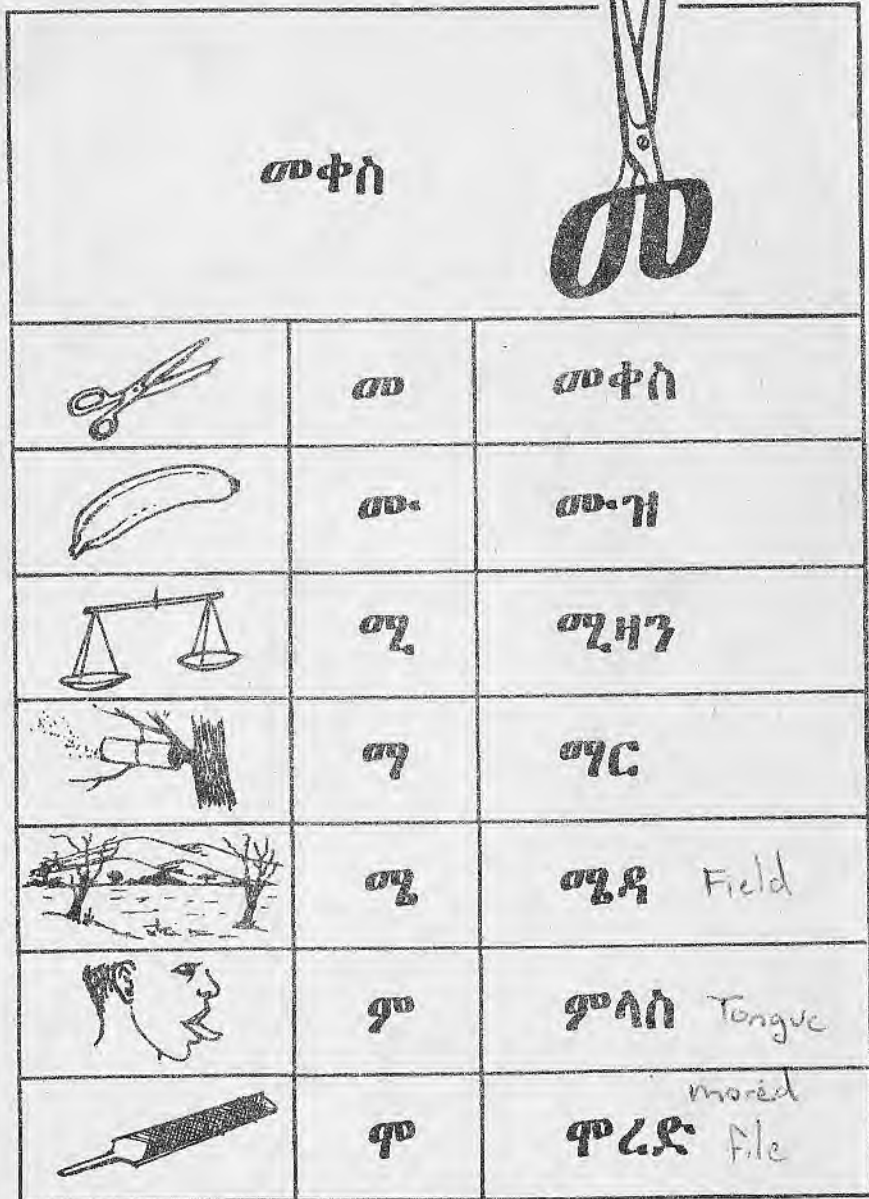 መቀስ
መ
መ መቀስ
ሙ ሙዝ
ሚ ሚዛን
ማ ማር
ሜ ሜዳ Field
ም ምላስ Tongue
moréd
ሞ ሞረድ file